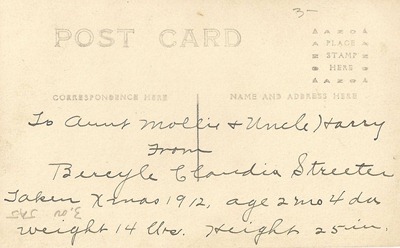 3-
POST CARD
AZO
PLACE
STAMP
HERE
AZO
CORRESPONDENCE HERE
NAME AND ADDRESS HERE
To Aunt Mollie & Uncle Harry
From
Claudia Streeter
Taken Xmas 1912, age 2 mo 4 da
weight 14 lbs. Height 25 in.